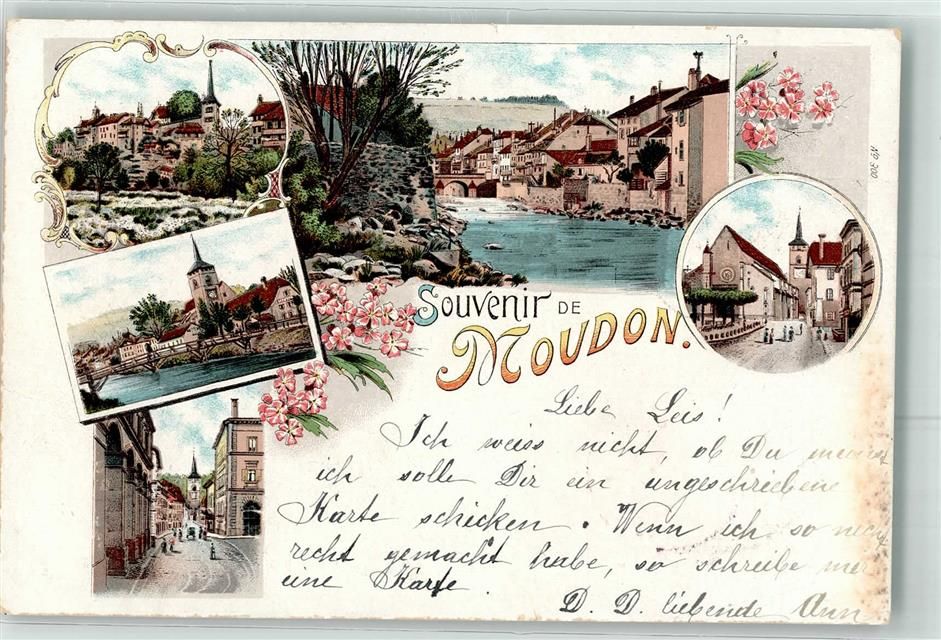 Souvenir DE
MOUDON.
Nº 300
Liebe Leis!
Ich weiss nicht, ob Du meinst
ich solle Dir ein ungeschriebene
Karte schicken. Wenn ich so nicht
recht gemacht habe, so schreibe mer
eine Karte.
D. D. liebende Ann